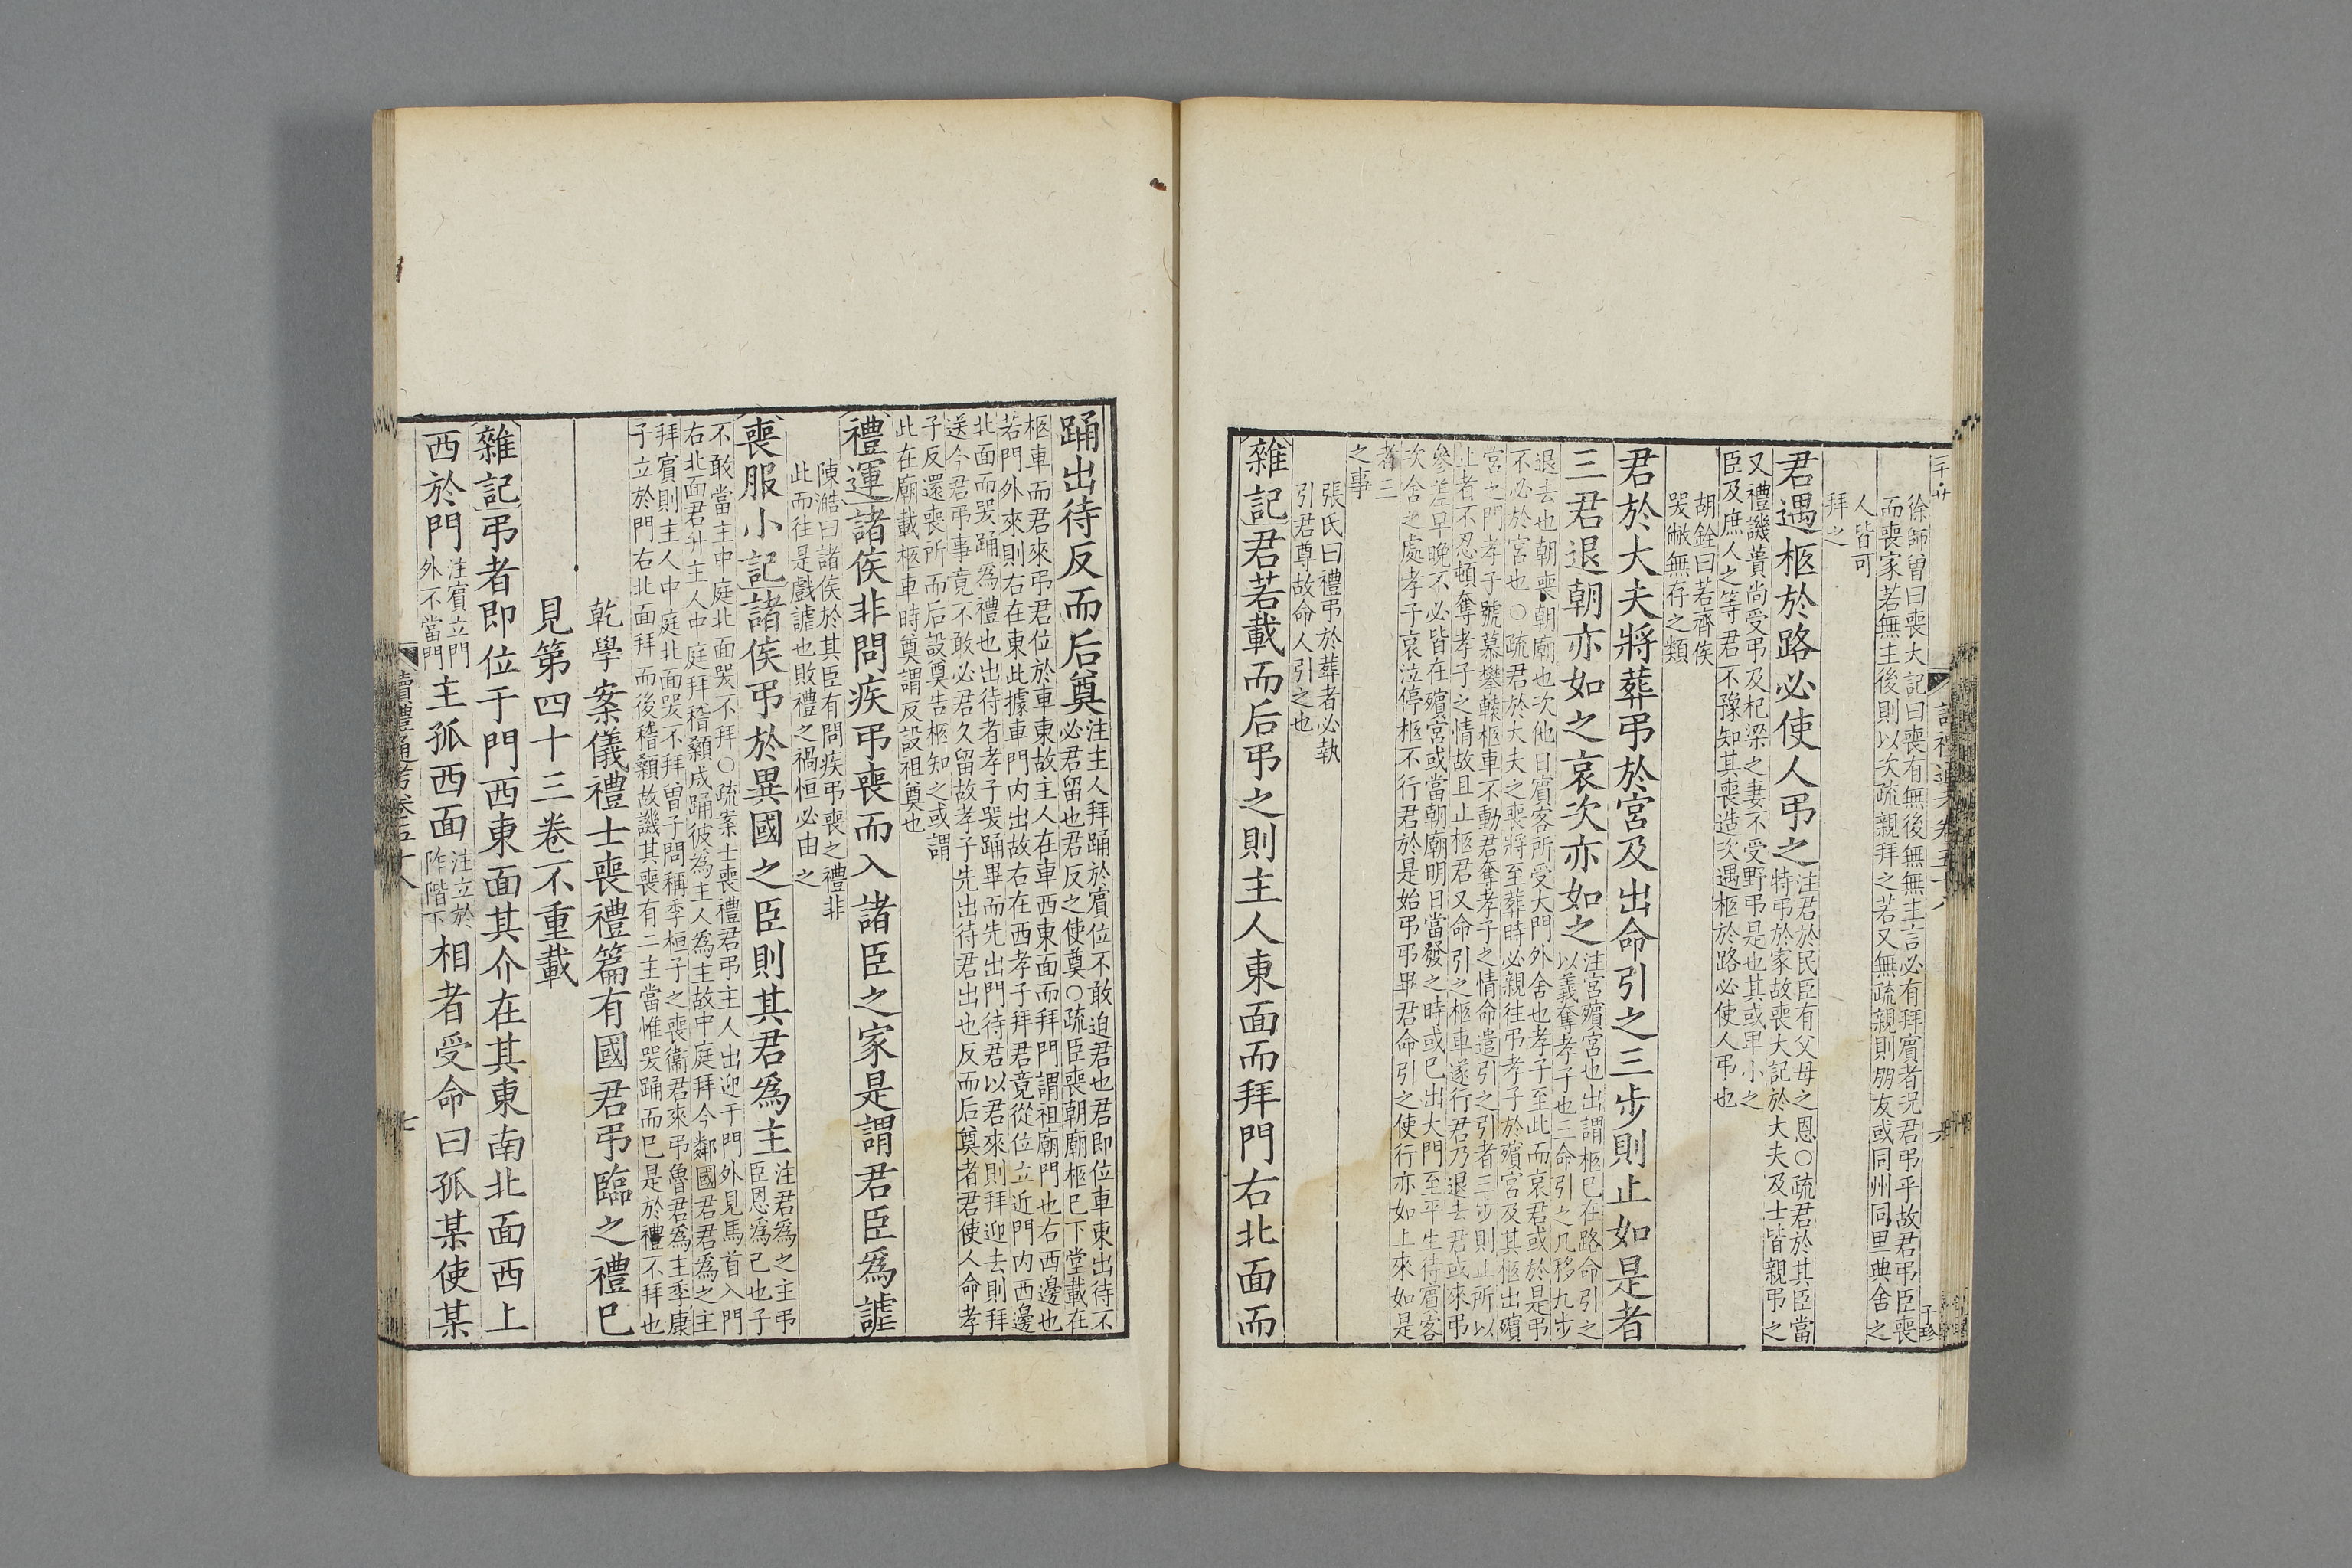 徐師曾曰喪大記曰喪有無後無無主言必有拜賓者況君弔乎故君弔臣喪
而喪家若無主後則以次疏親拜之若又無疏親則朋友或同州同里典舍之
人皆可
拜之
君遇柩於路必使人弔之
注君於民臣有父母之恩○疏君於其臣當
特弔於家故喪大記於大夫及士皆親弔之
又禮譏蕢尚受弔及杞梁之妻不受野弔是也其或卑小之
臣及庶人之等君不豫知其喪造次遇柩於路必使人弔也
胡銓曰若齊侯
哭敝無存之類
君於大夫將葬弔於宮及出命引之三步則止如是者
三君退朝亦如之哀次亦如之
注宮殯宮也出謂柩已在路命引之
以義奪孝子也三命引之凡移九步
退去也朝喪朝廟也次他日賓客所受大門外舍也孝子至此而哀君或於是弔
不必於宮也○疏君於大夫之喪將至葬時必親往弔孝子於殯宮及其柩出殯
宮之門孝子號慕攀轅柩車不動君奪孝子之情命遣引之引者三步則止所以
止者不忍頓奪孝子之情故且止柩君又命引之柩車遂行君乃退去君或來弔
參差早晚不必皆在殯宮或當朝廟明日當發之時或已出大門至平生待賓客
次舍之處孝子哀泣停柩不行君於是始弔弔畢君命引之使行亦如上來如是
者三
之事
張氏曰禮弔於葬者必執
引君尊故命人引之也
雜記君若載而后弔之則主人東面而拜門右北面而
踊出待反而后奠
注主人拜踊於賓位不敢迫君也君即位車東出待不
必君留也君反之使奠○疏臣喪朝廟柩已下堂載在
柩車而君來弔君位於車東故主人在車西東面而拜門謂祖廟門也右西邊也
若門外來則右在東此據車門內出故右在西孝子拜君竟從位立近門內西邊
北面而哭踊爲禮也出待者孝子哭踊畢而先出門待君以君來則拜迎去則拜
送今君弔事竟不敢必君久留故孝子先出待君出也反而后奠者君使人命孝
子反還喪所而后設奠告柩知之或謂
此在廟載柩車時奠謂反設祖奠也
禮運諸侯非問疾弔喪而入諸臣之家是謂君臣爲謔
陳澔曰諸侯於其臣有問疾弔喪之禮非
此而往是戲謔也敗禮之禍恒必由之
喪服小記諸侯弔於異國之臣則其君爲主
注君為之主弔
臣恩爲己也子
不敢當主中庭北面哭不拜○疏案士喪禮君弔主人出迎于門外見馬首入門
右北面君升主人中庭拜稽顙成踊彼為主人爲主故中庭拜今鄰國君君為之主
拜賓則主人中庭北面哭不拜曾子問稱季桓子之喪衞君來弔魯君爲主季康
子立於門右北面拜而後稽顙故譏其喪有二主當惟哭踊而已是於禮不拜也
乾學案儀禮士喪禮篇有國君弔臨之禮已
見第四十三卷不重載
雜記弔者即位于門西東面其介在其東南北面西上
西於門
注賓立門
外不當門
主孤西面
注立於
阼階下
相者受命曰孤某使某
讀禮通考卷五十八
七